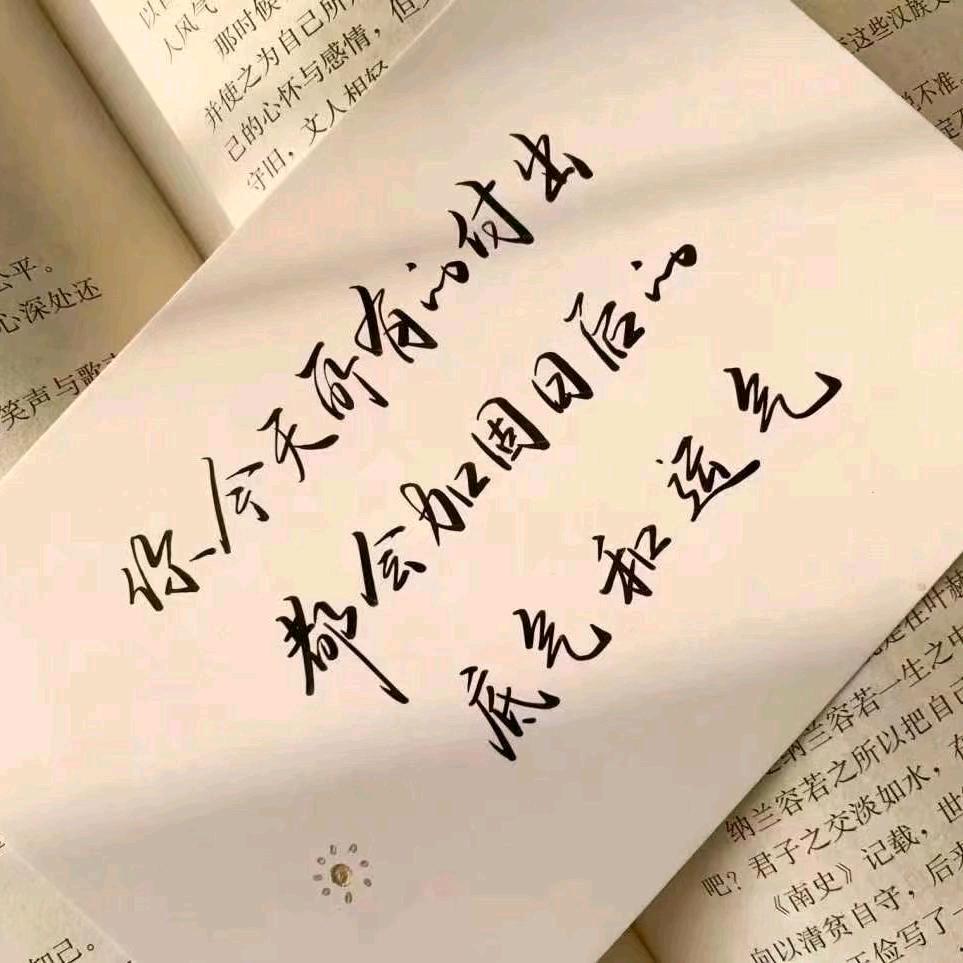 人风气
那时候
并使之为自己所
己的心怀与感情，
守旧，文人相
这些汉族文
不准。
公平。
心深处还
笑声与歌
你今天所有的付出
都会加固日后的
底气和运气
是在叶赫
纳兰容若一生之中
纳兰容若之所以把自己
吧？君子之交淡如水，在
《南史》记载，世
向以清贫自守，后来
俭写了一
知己。